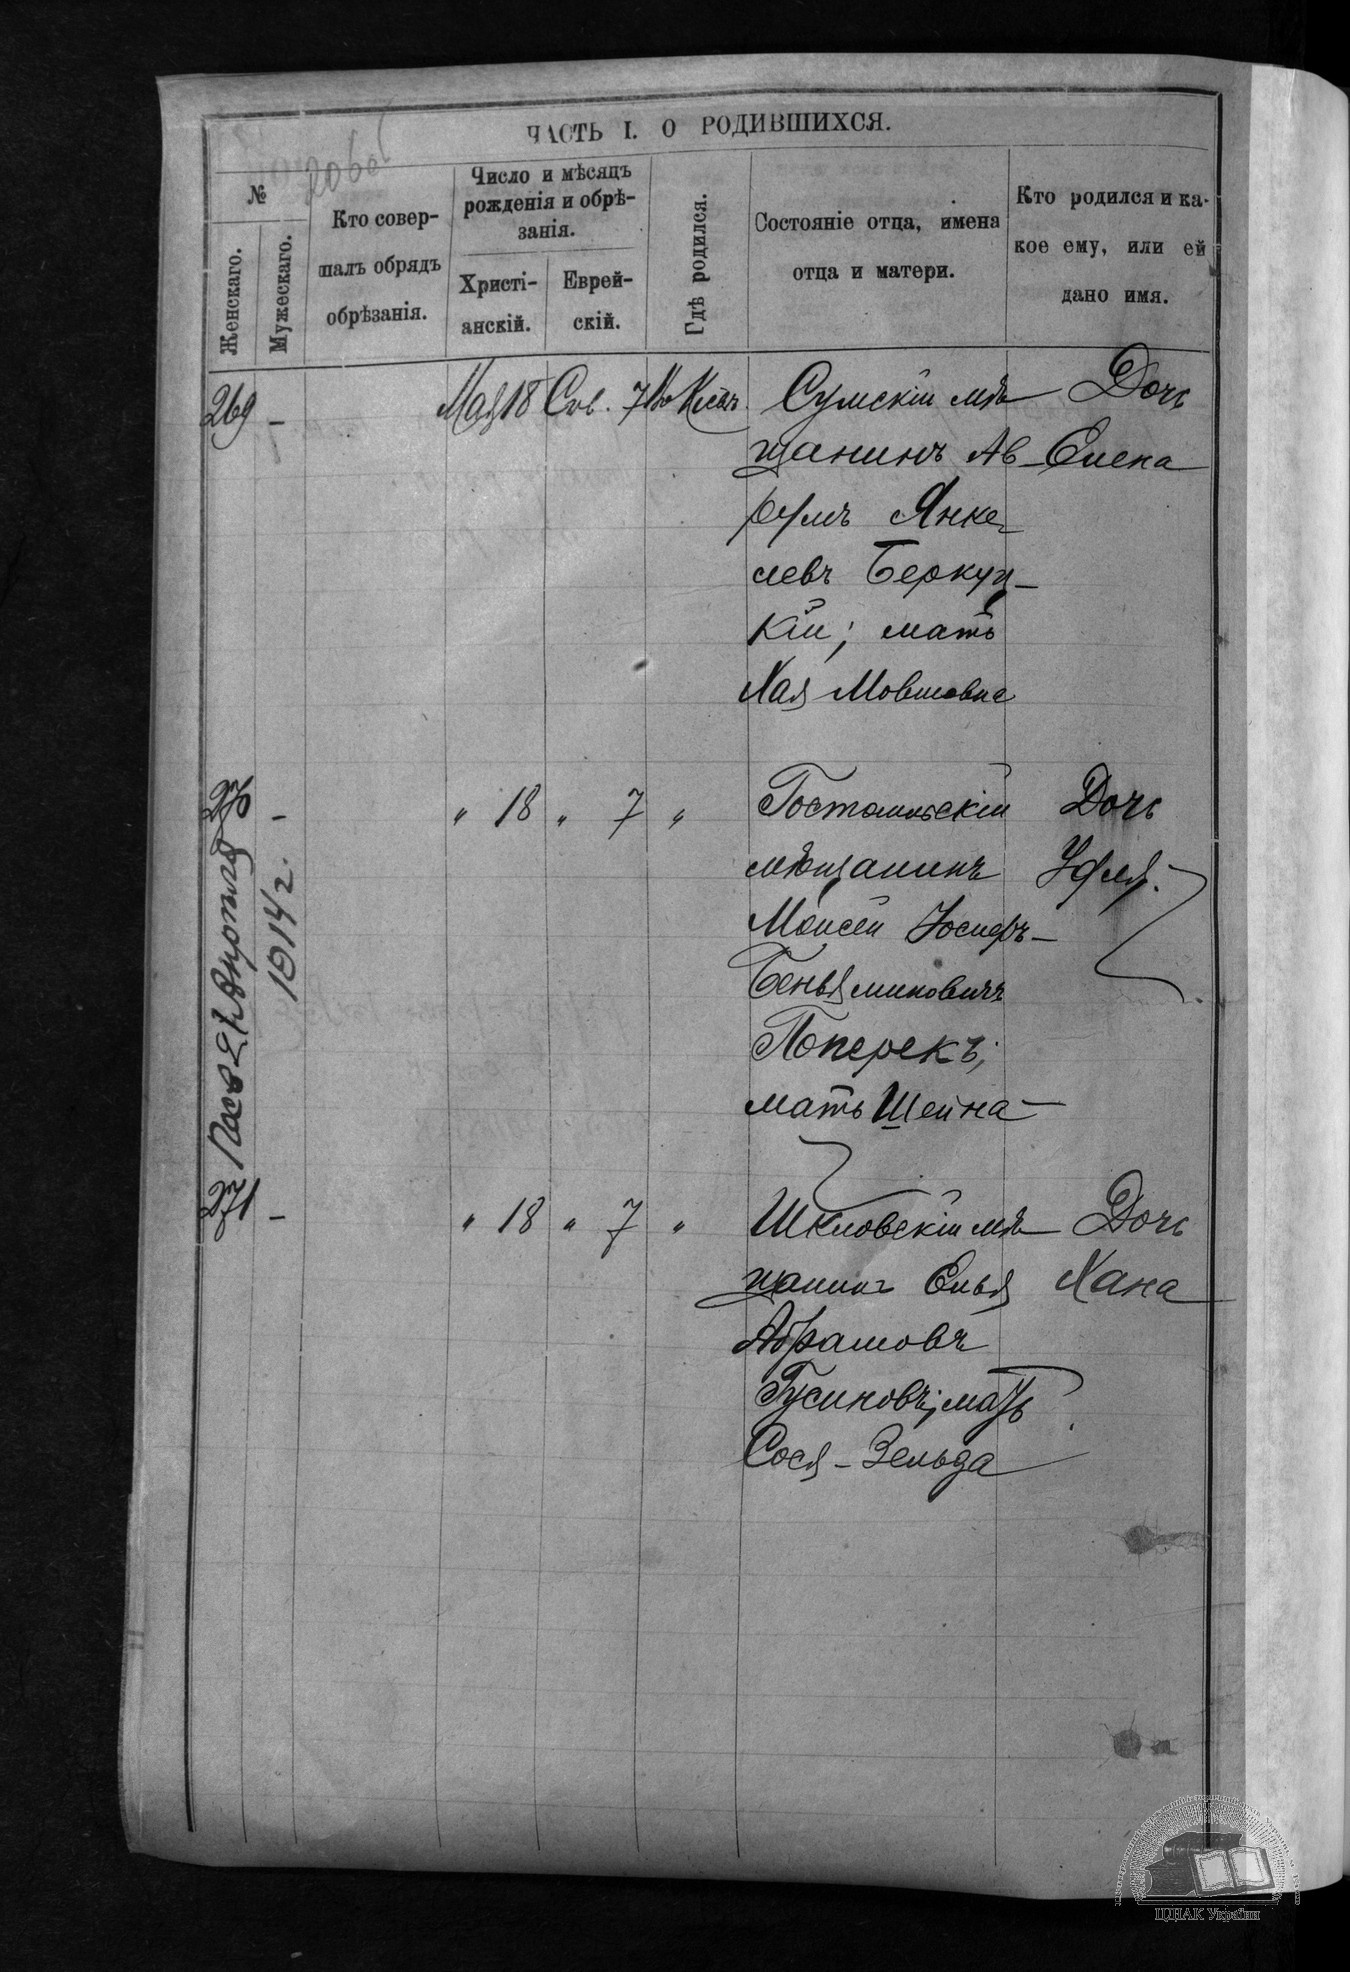 ЧАСТЬ I. О РОДИВШИХСЯ.
№
Женскаго.
Мужескаго.
Кто совер-
шалъ обрядъ
обрѣзанія.
Число и мѣсяцъ
рожденія и обрѣ-
занія.
Христі-
анскій.
Еврей-
скій.
Гдѣ родился.
Состояніе отца, имена
отца и матери.
Кто родился и ка-
кое ему, или ей
дано имя.
269 - Мая 18 Сив. 7 Сумскій мѣ- Дочь
щанинъ Ав- Елена
румъ Янке-
левъ Беркуц-
кій; мать
Хая Мовшовна
270 - " 18 " 7 " Гостомльскій Дочь
мѣщанинъ
Моисей Іосифъ-
Беньяминовичъ
Поперекъ;
мать Шейна
1914 г.
271 - " 18 " 7 " Шкловскій мѣ- Дочь
щанинъ Елья Хана
Абрамовъ
Гусиновъ; мать
Сося-Зельда
ЦНАК України